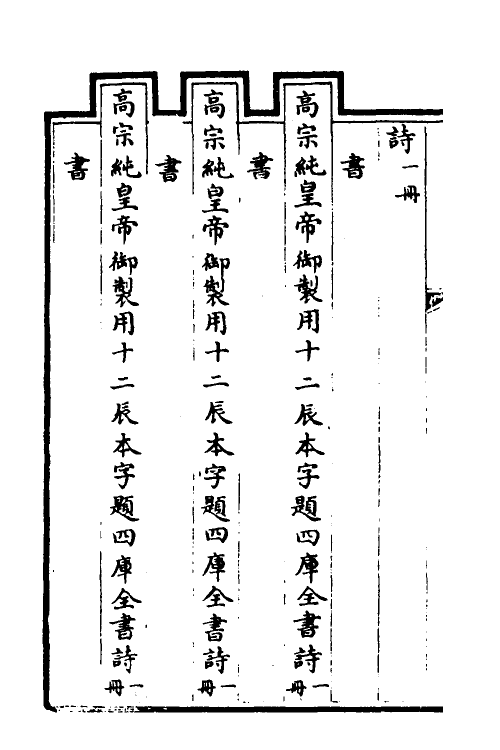 詩一冊
書
高宗純皇帝御製用十二辰本字題四庫全書詩一冊
書
高宗純皇帝御製用十二辰本字題四庫全書詩一冊
書
高宗純皇帝御製用十二辰本字題四庫全書詩一冊
書